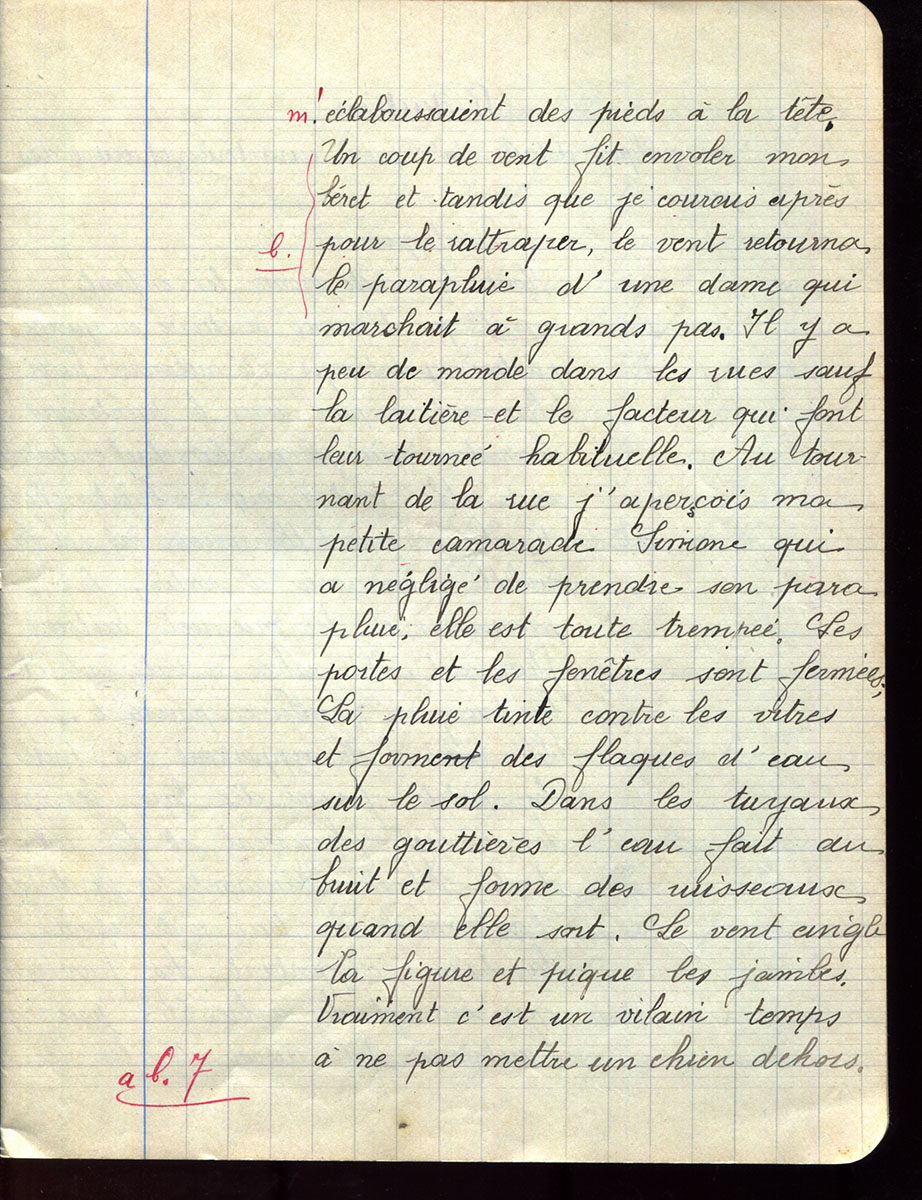 m'éclaboussaient des pieds à la tête.
Un coup de vent fit envoler mon
béret et tandis que je courais après
b.
pour le rattraper, le vent retourna
le parapluie d'une dame qui
marchait à grands pas. Il y a
peu de monde dans les rues sauf
la laitière et le facteur qui font
leur tournée habituelle. Au tour-
nant de la rue j'aperçois ma
petite camarade Simone qui
a négligé de prendre son para
pluie, elle est toute trempée. Les
portes et les fenêtres sont fermées,
La pluie tinte contre les vitres
et forment des flaques d'eau
sur le sol. Dans les tuyaux
des gouttières l'eau fait du
bruit et forme des ruisseaux
quand elle sort. Le vent cingle
la figure et pique les jambes.
Vraiment c'est un vilain temps
à ne pas mettre un chien dehors.
a b. 7